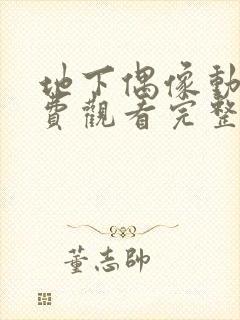 地下偶像動
費觀看完整
董志帥